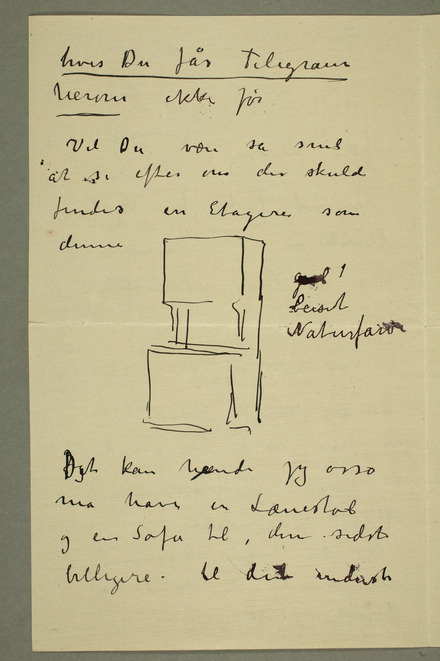 hvis Du får Telegram
herom ikke før
Vil Du være så snil
at se efter om der skulde
findes en Etagere som
denne
gul 1
beiset
Naturfarve
Det kan hænde jeg også
må have en Lænestol
og en Sofa til, den sidste
billigere. til det